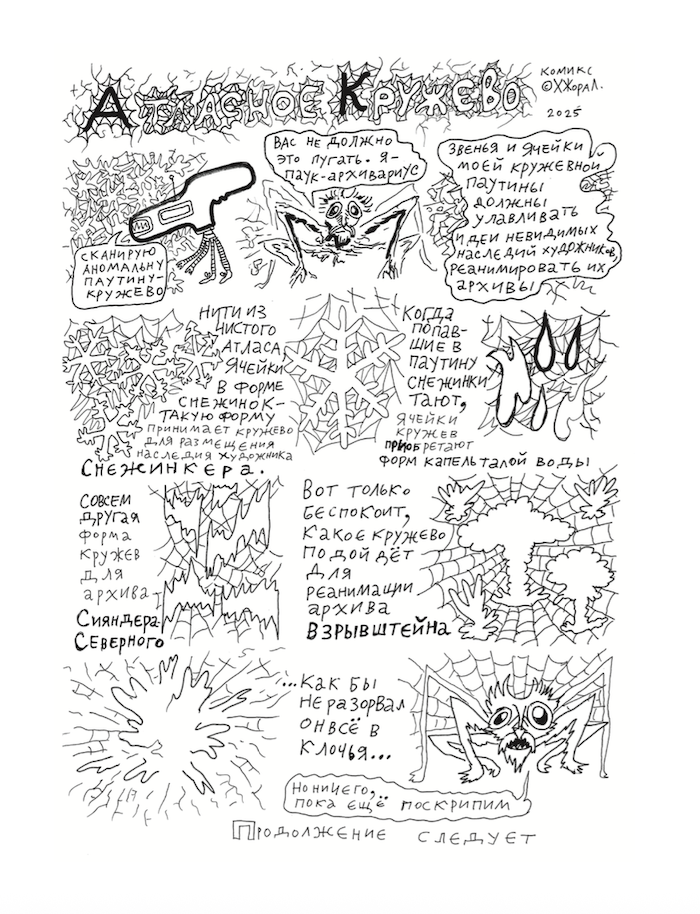 АТЛАСНОЕ КРУЖЕВО
КОМИКС
©ХЖОРАЛ.
2025
СКАНИРУЮ
АНОМАЛЬНУ
ПАУТИНУ-
КРУЖЕВО
ВАС НЕ ДОЛЖНО
ЭТО ПУГАТЬ. Я-
ПАУК-АРХИВАРИУС
ЗВЕНЬЯ И ЯЧЕЙКИ
МОЕЙ КРУЖЕВНОЙ
ПАУТИНЫ
ДОЛЖНЫ
УЛАВЛИВАТЬ
ИДЕИ НЕВИДИМЫХ
НАСЛЕДИЙ ХУДОЖНИКОВ,
РЕАНИМИРОВАТЬ ИХ
АРХИВЫ
НИТИ ИЗ
ЧИСТОГО
АТЛАСА,
ЯЧЕЙКИ
В ФОРМЕ
СНЕЖИНОК-
ТАКУЮ ФОРМУ
ПРИНИМАЕТ КРУЖЕВО
ДЛЯ РАЗМЕЩЕНИЯ
НАСЛЕДИЯ ХУДОЖНИКА
СНЕЖИНКЕРА.
КОГДА
ПОПАВ-
ШИЕ В
ПАУТИНУ
СНЕЖИНКИ
ТАЮТ,
ЯЧЕЙКИ
КРУЖЕВ
ПРИОБРЕТАЮТ
ФОРМ КАПЕЛЬ ТАЛОЙ ВОДЫ
СОВСЕМ
ДРУГАЯ
ФОРМА
КРУЖЕВ
ДЛЯ
АРХИВА-
СИЯНДЕРА
СЕВЕРНОГО
ВОТ ТОЛЬКО
БЕСПОКОИТ,
КАКОЕ КРУЖЕВО
ПОДОЙДЁТ
ДЛЯ
РЕАНИМАЦИИ
АРХИВА
ВЗРЫВШТЕЙНА
...КАК БЫ
НЕ РАЗОРВАЛ
ОН ВСЁ В
КЛОЧЬЯ...
НО НИЧЕГО,
ПОКА ЕЩЁ ПОСКРИПИМ
ПРОДОЛЖЕНИЕ СЛЕДУЕТ